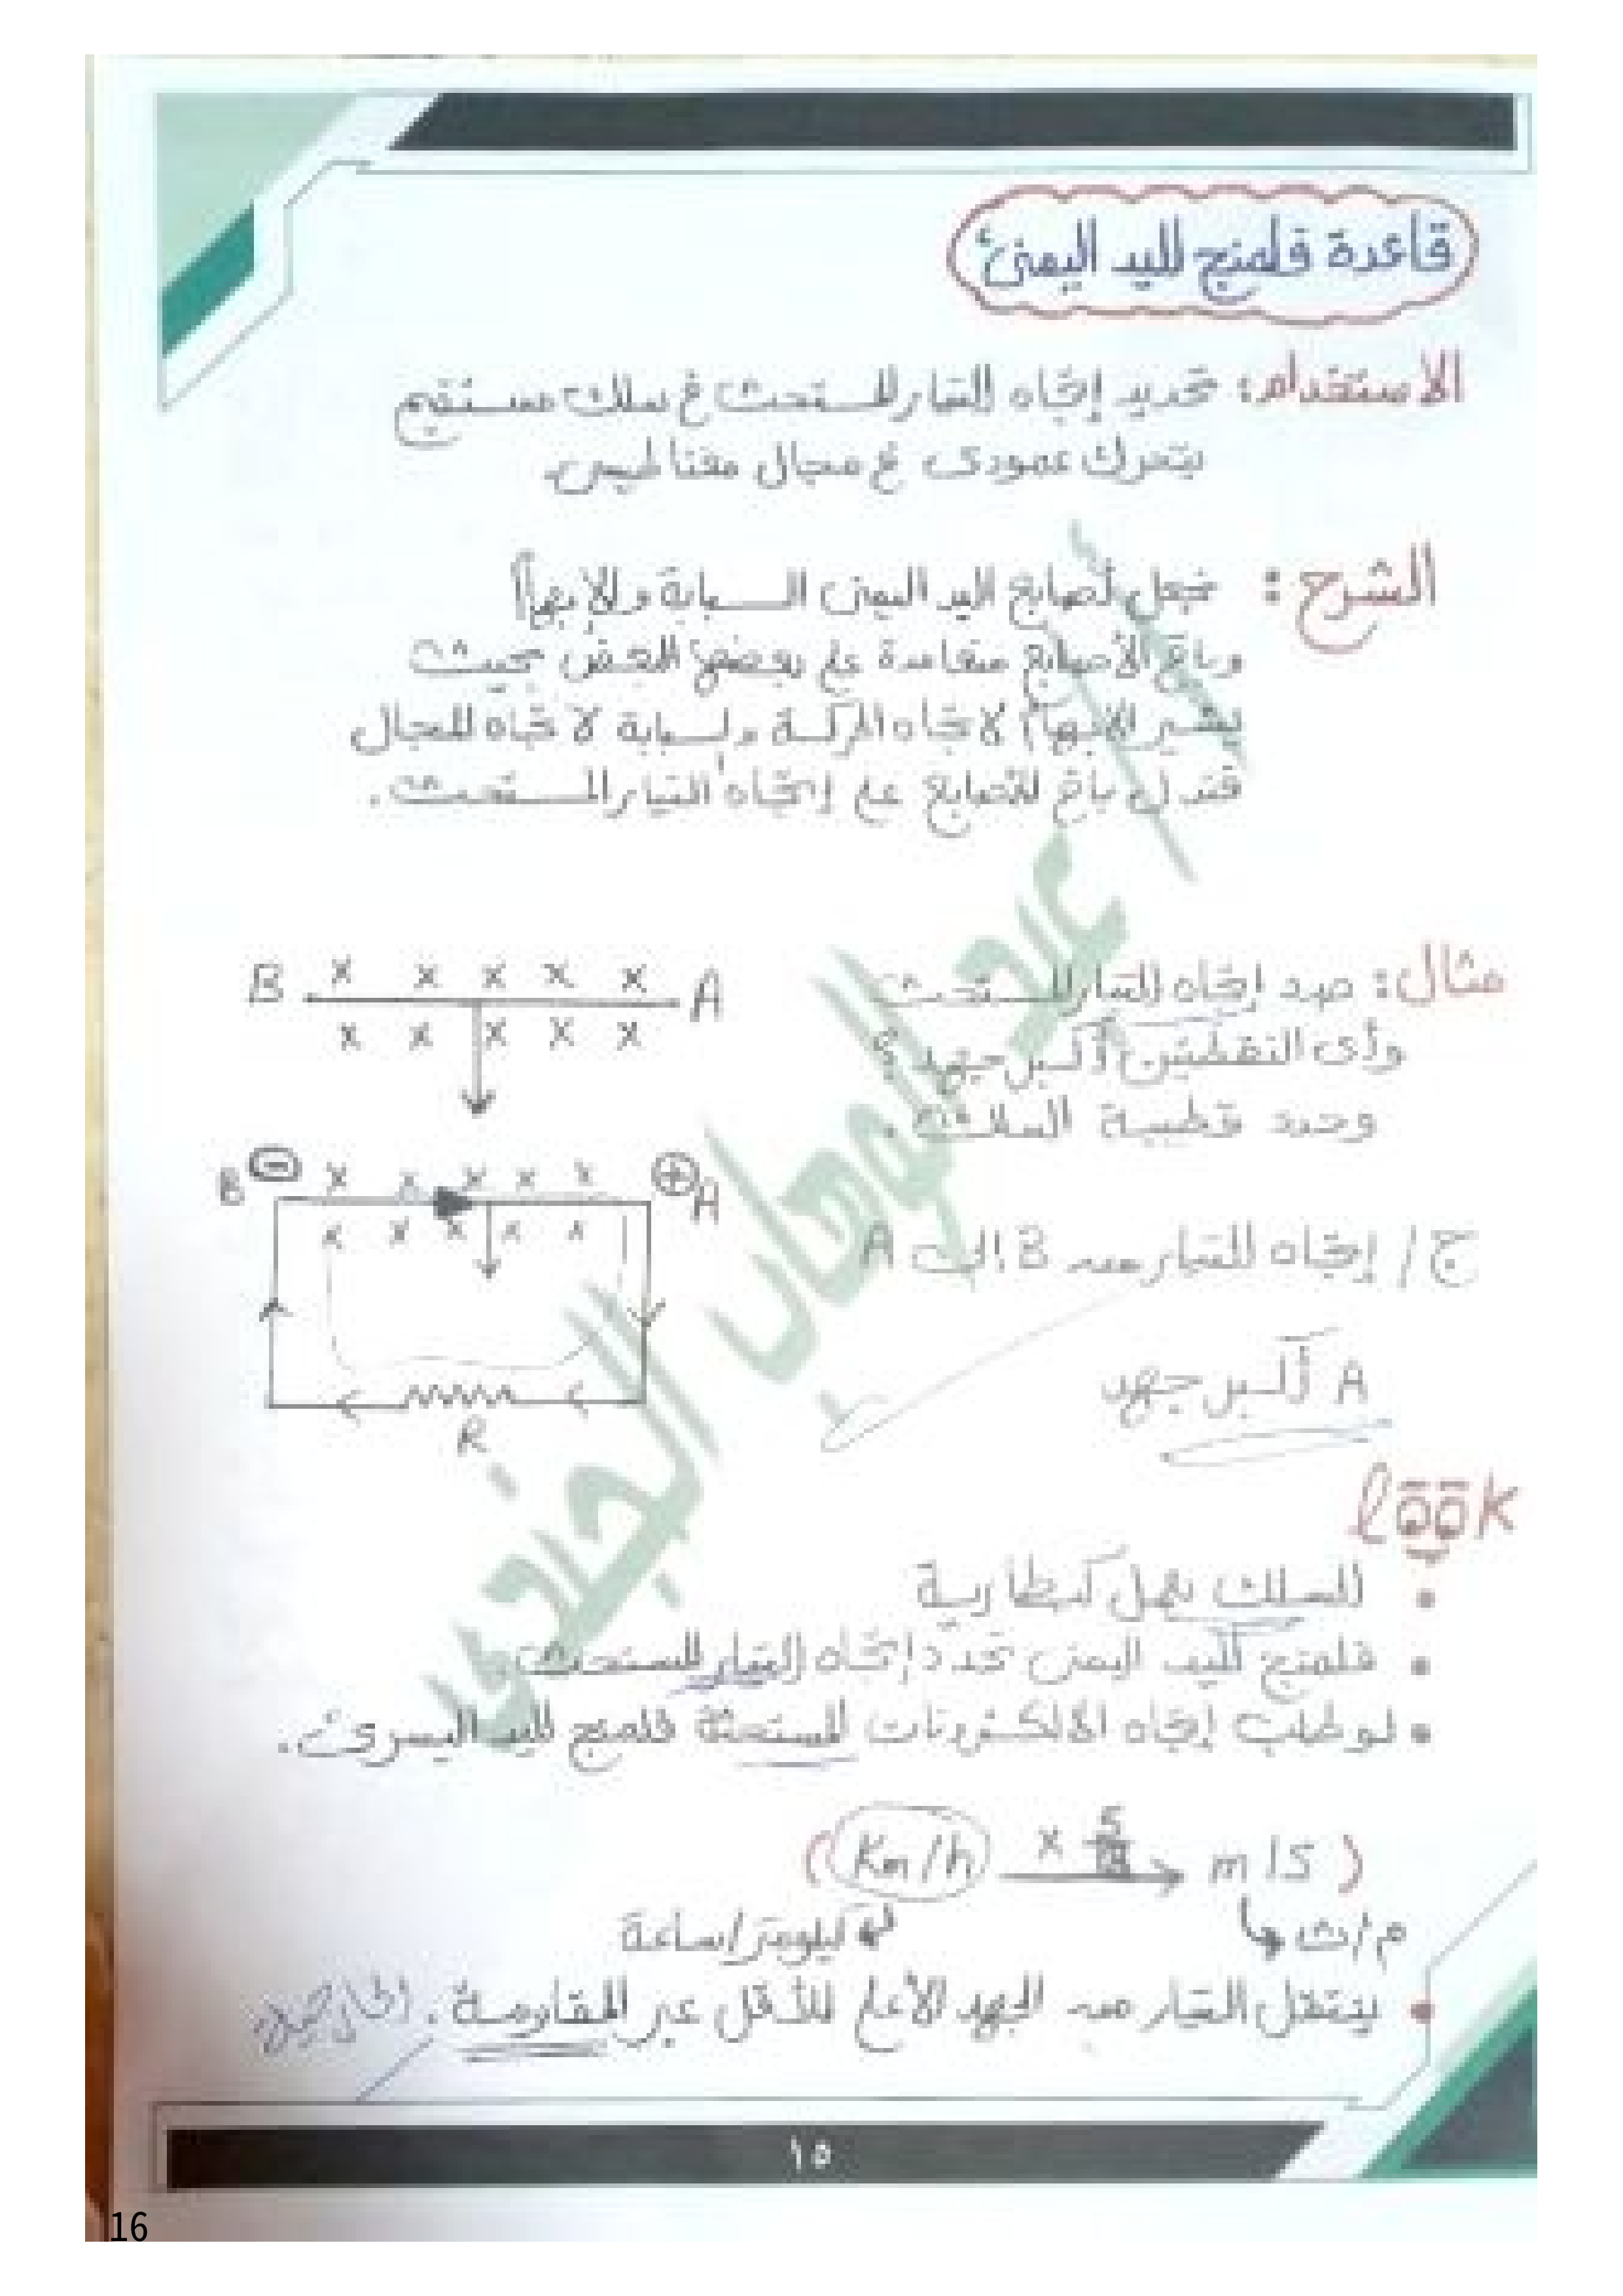 قاعدة فلمنج لليد اليمنى
الاستخدام: تحديد إتجاه التيار المستحث في سلك مستقيم
يتحرك عمودى في مجال مغناطيسى
الشرح: نجعل أصابع اليد اليمنى السبابة والإبهام
وباقى الأصابع متعامدة على بعضها البعض بحيث
يشير الإبهام لاتجاه الحركة والسبابة لاتجاه المجال
فتدل باقى الأصابع على إتجاه التيار المستحث.
مثال: حدد إتجاه التيار المستحث
وأى النقطتين أكبر جهد؟
وحدد قطبية السلك.
B x x x x x A
x x x x x
B - x x x x x + A
x x x x x
R
ج/ إتجاه التيار من B إلى A
A أكبر جهد
look
• السلك يعمل كبطارية
• فلمنج لليد اليمنى تحدد إتجاه التيار المستحث.
• لو طلب إتجاه الالكترونات المستحثة فلمنج لليد اليسرى.
(Km/h x 5/18 m/s)
كيلومتر/ساعة م/ث
• ينتقل التيار من الجهد الأعلى للأقل عبر المقاومة.
١٥
16
عبد الوهاب الجندى